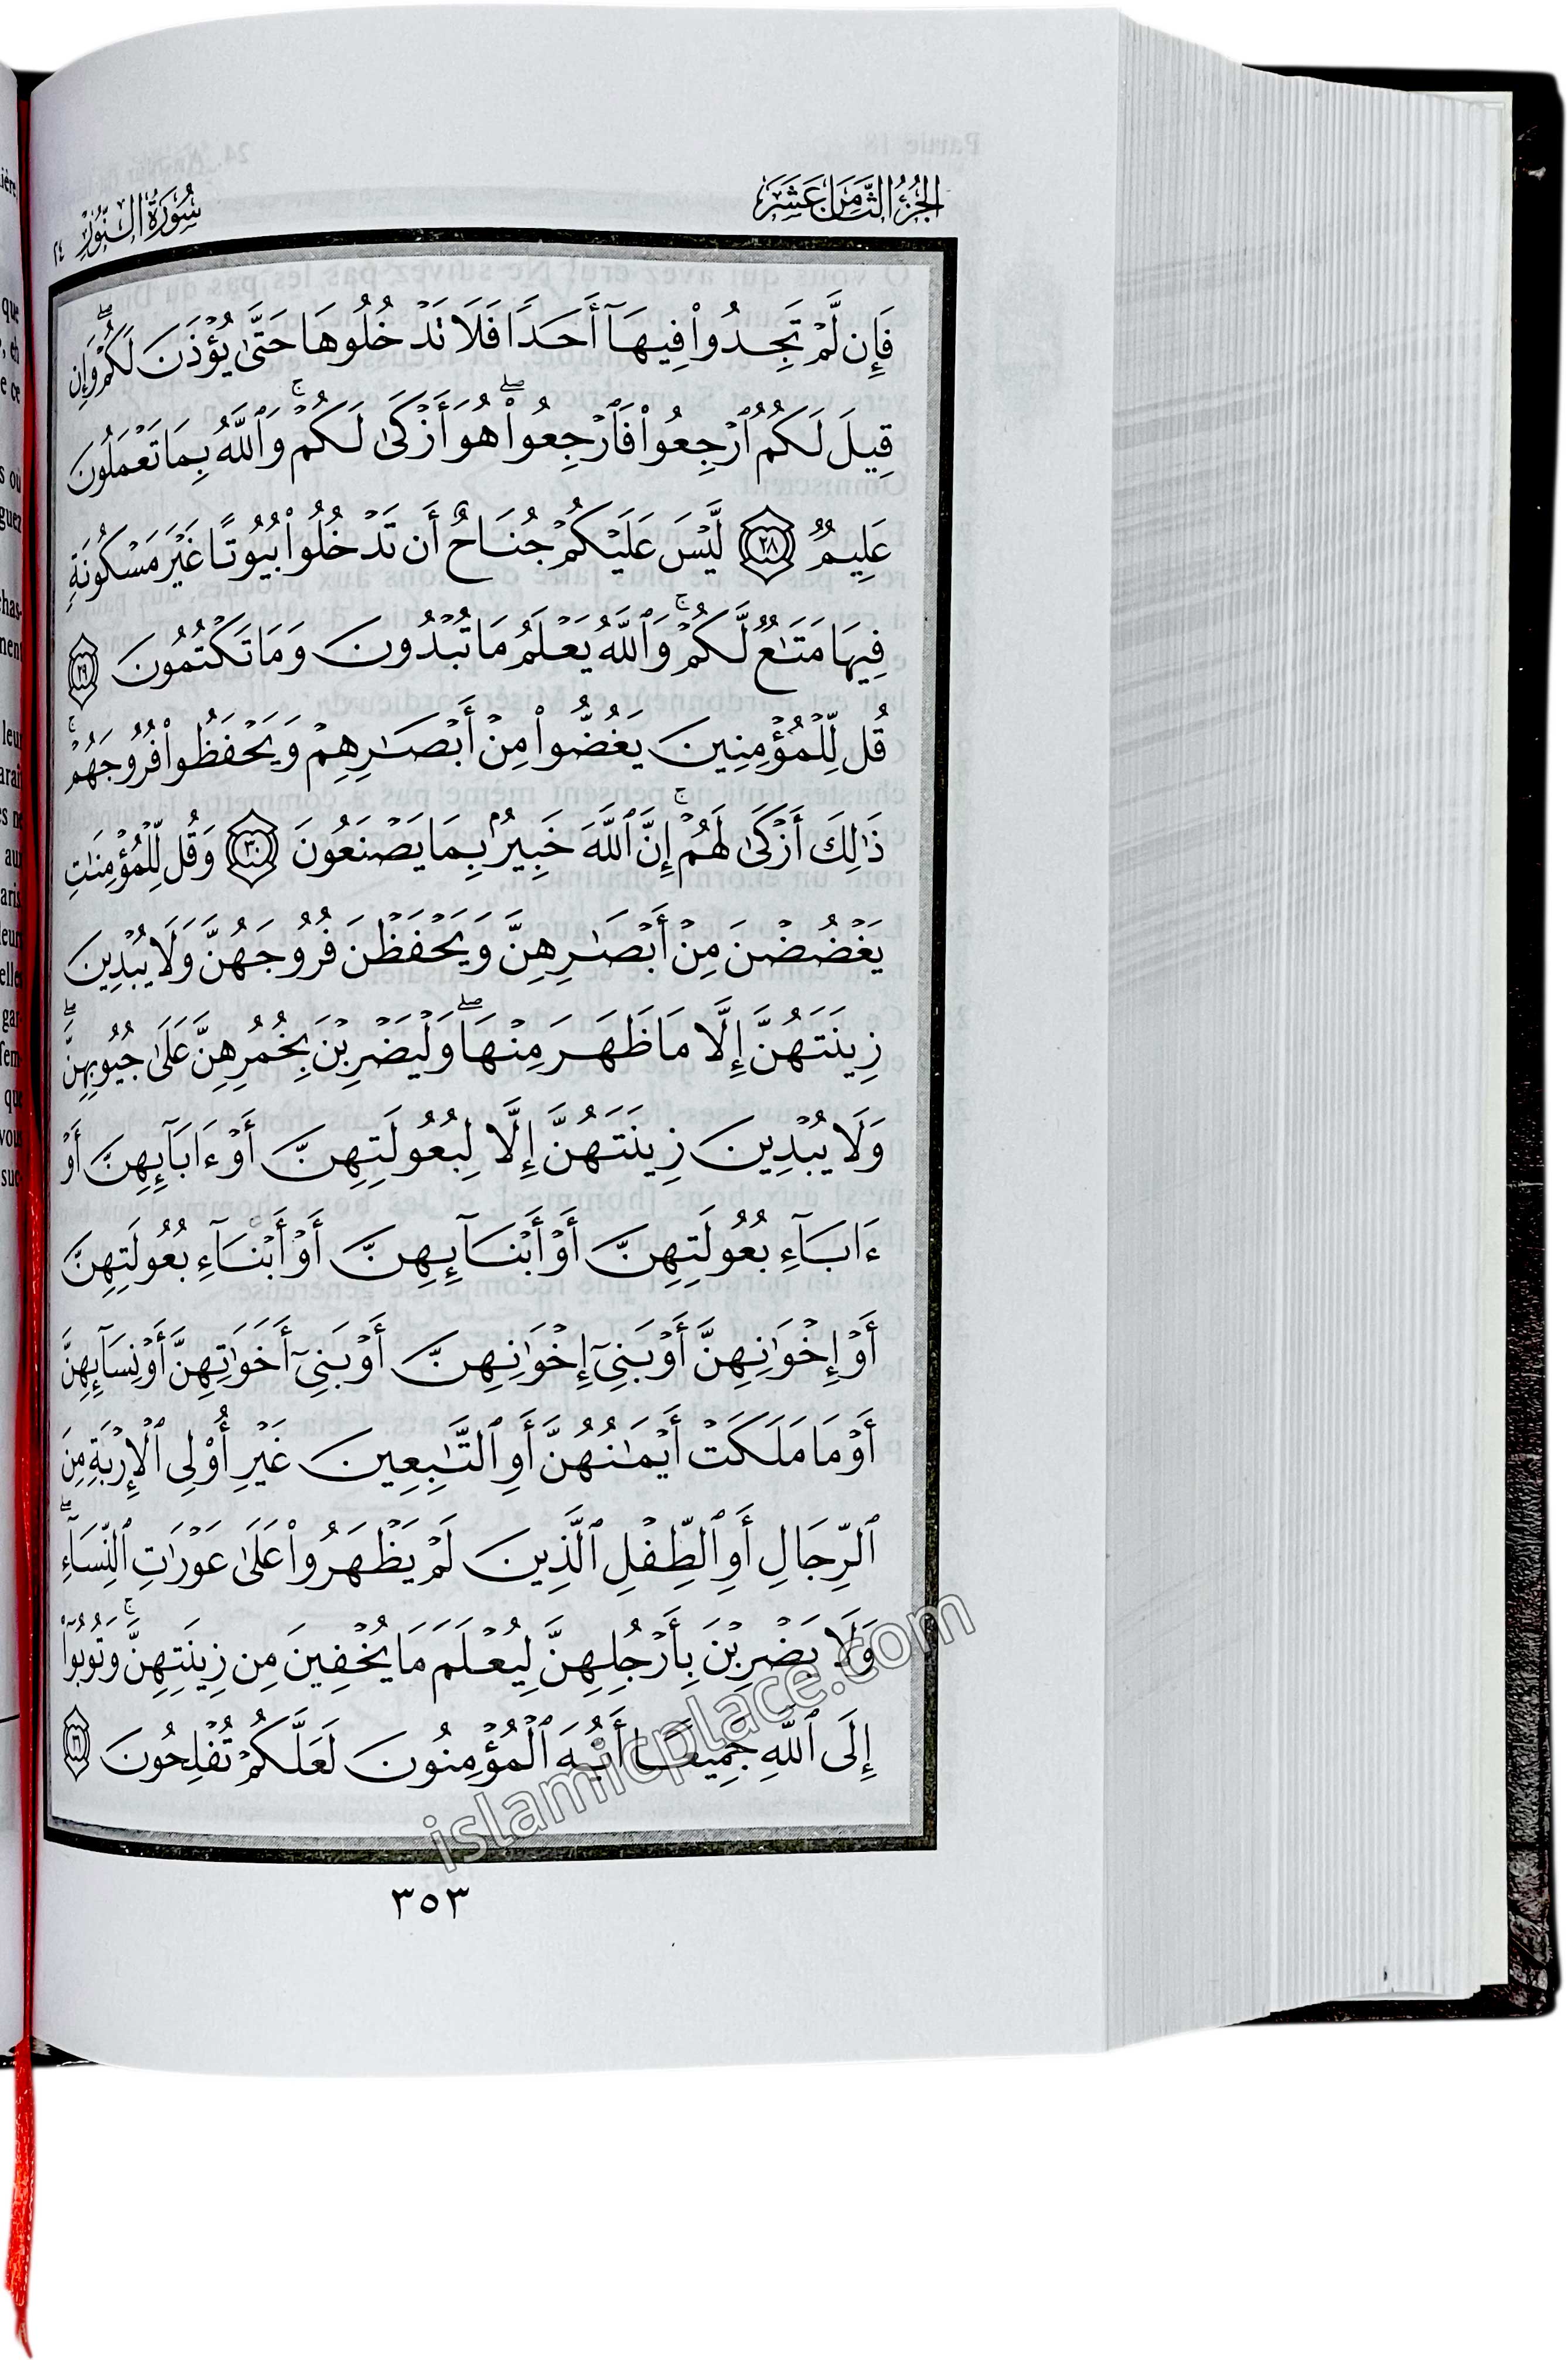 الجُزْءُ الثَّامِنَ عَشَرَ
سُورَةُ النُّورِ ٢٤
فَإِن لَّمْ تَجِدُوا۟ فِيهَآ أَحَدًا فَلَا تَدْخُلُوهَا حَتَّىٰ يُؤْذَنَ لَكُمْ ۖ وَإِن
قِيلَ لَكُمُ ٱرْجِعُوا۟ فَٱرْجِعُوا۟ ۖ هُوَ أَزْكَىٰ لَكُمْ ۚ وَٱللَّهُ بِمَا تَعْمَلُونَ
عَلِيمٌ ٢٨ لَّيْسَ عَلَيْكُمْ جُنَاحٌ أَن تَدْخُلُوا۟ بُيُوتًا غَيْرَ مَسْكُونَةٍ
فِيهَا مَتَـٰعٌ لَّكُمْ ۚ وَٱللَّهُ يَعْلَمُ مَا تُبْدُونَ وَمَا تَكْتُمُونَ ٢٩
قُل لِّلْمُؤْمِنِينَ يَغُضُّوا۟ مِنْ أَبْصَـٰرِهِمْ وَيَحْفَظُوا۟ فُرُوجَهُمْ ۚ
ذَٰلِكَ أَزْكَىٰ لَهُمْ ۗ إِنَّ ٱللَّهَ خَبِيرٌۢ بِمَا يَصْنَعُونَ ٣٠ وَقُل لِّلْمُؤْمِنَـٰتِ
يَغْضُضْنَ مِنْ أَبْصَـٰرِهِنَّ وَيَحْفَظْنَ فُرُوجَهُنَّ وَلَا يُبْدِينَ
زِينَتَهُنَّ إِلَّا مَا ظَهَرَ مِنْهَا ۖ وَلْيَضْرِبْنَ بِخُمُرِهِنَّ عَلَىٰ جُيُوبِهِنَّ ۖ
وَلَا يُبْدِينَ زِينَتَهُنَّ إِلَّا لِبُعُولَتِهِنَّ أَوْ ءَابَآئِهِنَّ أَوْ
ءَابَآءِ بُعُولَتِهِنَّ أَوْ أَبْنَآئِهِنَّ أَوْ أَبْنَآءِ بُعُولَتِهِنَّ
أَوْ إِخْوَٰنِهِنَّ أَوْ بَنِىٓ إِخْوَٰنِهِنَّ أَوْ بَنِىٓ أَخَوَٰتِهِنَّ أَوْ نِسَآئِهِنَّ
أَوْ مَا مَلَكَتْ أَيْمَـٰنُهُنَّ أَوِ ٱلتَّـٰبِعِينَ غَيْرِ أُو۟لِى ٱلْإِرْبَةِ مِنَ
ٱلرِّجَالِ أَوِ ٱلطِّفْلِ ٱلَّذِينَ لَمْ يَظْهَرُوا۟ عَلَىٰ عَوْرَٰتِ ٱلنِّسَآءِ ۖ
وَلَا يَضْرِبْنَ بِأَرْجُلِهِنَّ لِيُعْلَمَ مَا يُخْفِينَ مِن زِينَتِهِنَّ ۚ وَتُوبُوٓا۟
إِلَى ٱللَّهِ جَمِيعًا أَيُّهَ ٱلْمُؤْمِنُونَ لَعَلَّكُمْ تُفْلِحُونَ ٣١
٣٥٣
islamicplace.com